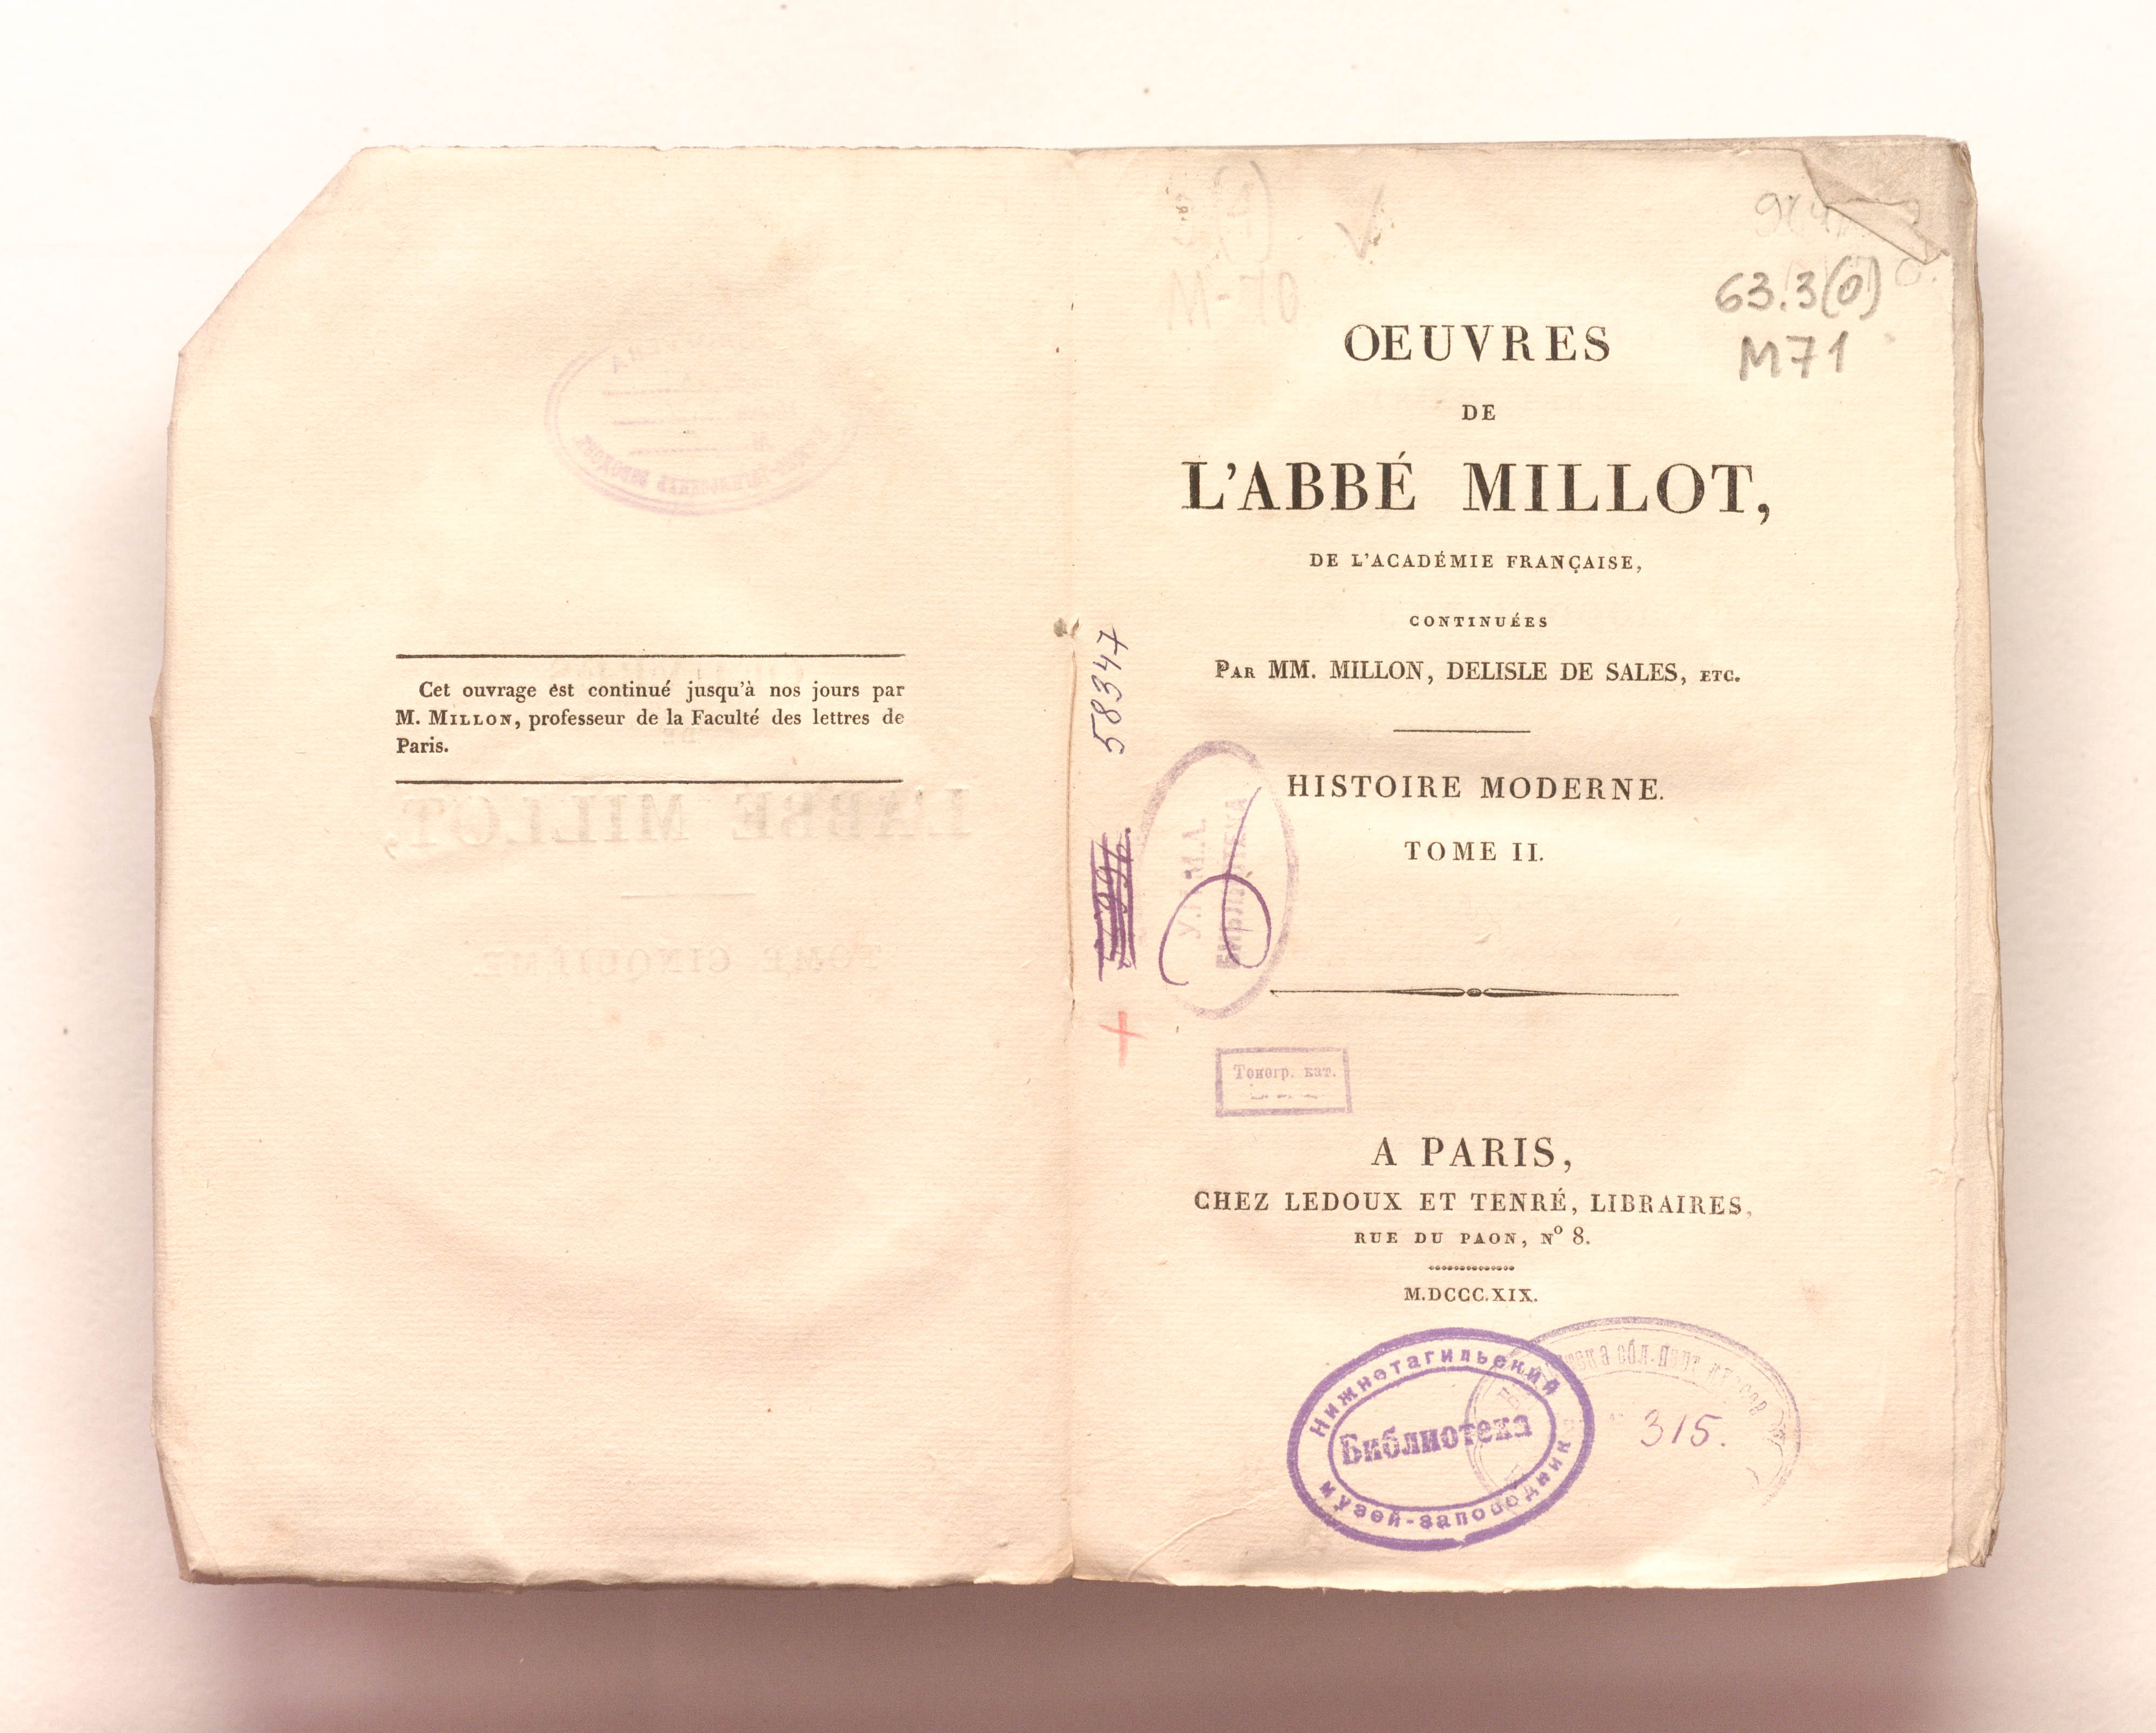 Cet ouvrage est continué jusqu'à nos jours par
M. MILLON, professeur de la Faculté des lettres de
Paris.
63.3(0)
M71
OEUVRES
DE
L'ABBÉ MILLOT,
DE L'ACADÉMIE FRANÇAISE,
CONTINUÉES
PAR MM. MILLON, DELISLE DE SALES, ETC.
58347
HISTOIRE MODERNE.
TOME II.
БИБЛИОТЕКА
кат.
A PARIS,
CHEZ LEDOUX ET TENRÉ, LIBRAIRES,
RUE DU PAON, Nº 8.
M.DCCC.XIX.
Нижнетагильский
Библиотека
музей-заповедник
315.